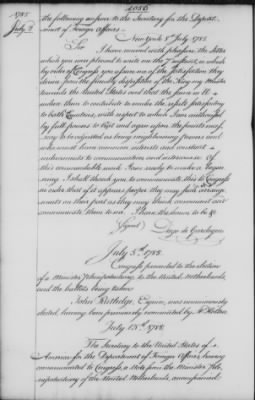 1785
July 2
1056
the following answer to the Secretary for the Depart-
ment of Foreign Affairs.
New York 2d July 1785.
Sir
I have received with pleasure the letter
which you were pleased to write on the
by order of Congress you inform me of the satisfaction they
derive from the friendly disposition of the King my Master
towards the United States and that the same
them to contribute to render the
to both Countries, with respect to which I am authorised
by full powers to treat and agree upon the points neces-
sary to be adjusted as being neighbouring powers and
who must have common interests and constant
inducements to communication and intercourse. If
this commendable work I am ready to make a begin-
ning. I shall thank you to communicate this to Congress
in order that if it appears proper they may
on their part as they may think convenient and
communicate them to me. I have the honor to be &c
(Signed) Diego de Gardoqui
July 5th 1785.
Congress proceeded to the election
of a Minister Plenipotentiary to the United Netherlands,
and the ballots being taken
John Rutledge, Esquire, was unanimously
elected, having been previously nominated by Mr
July 13th 1785
The Secretary to the United States of
America for the Department of Foreign Affairs, having
communicated to Congress, a Note from the Minister Pleni-
potentiary of the United Netherlands, accompanied